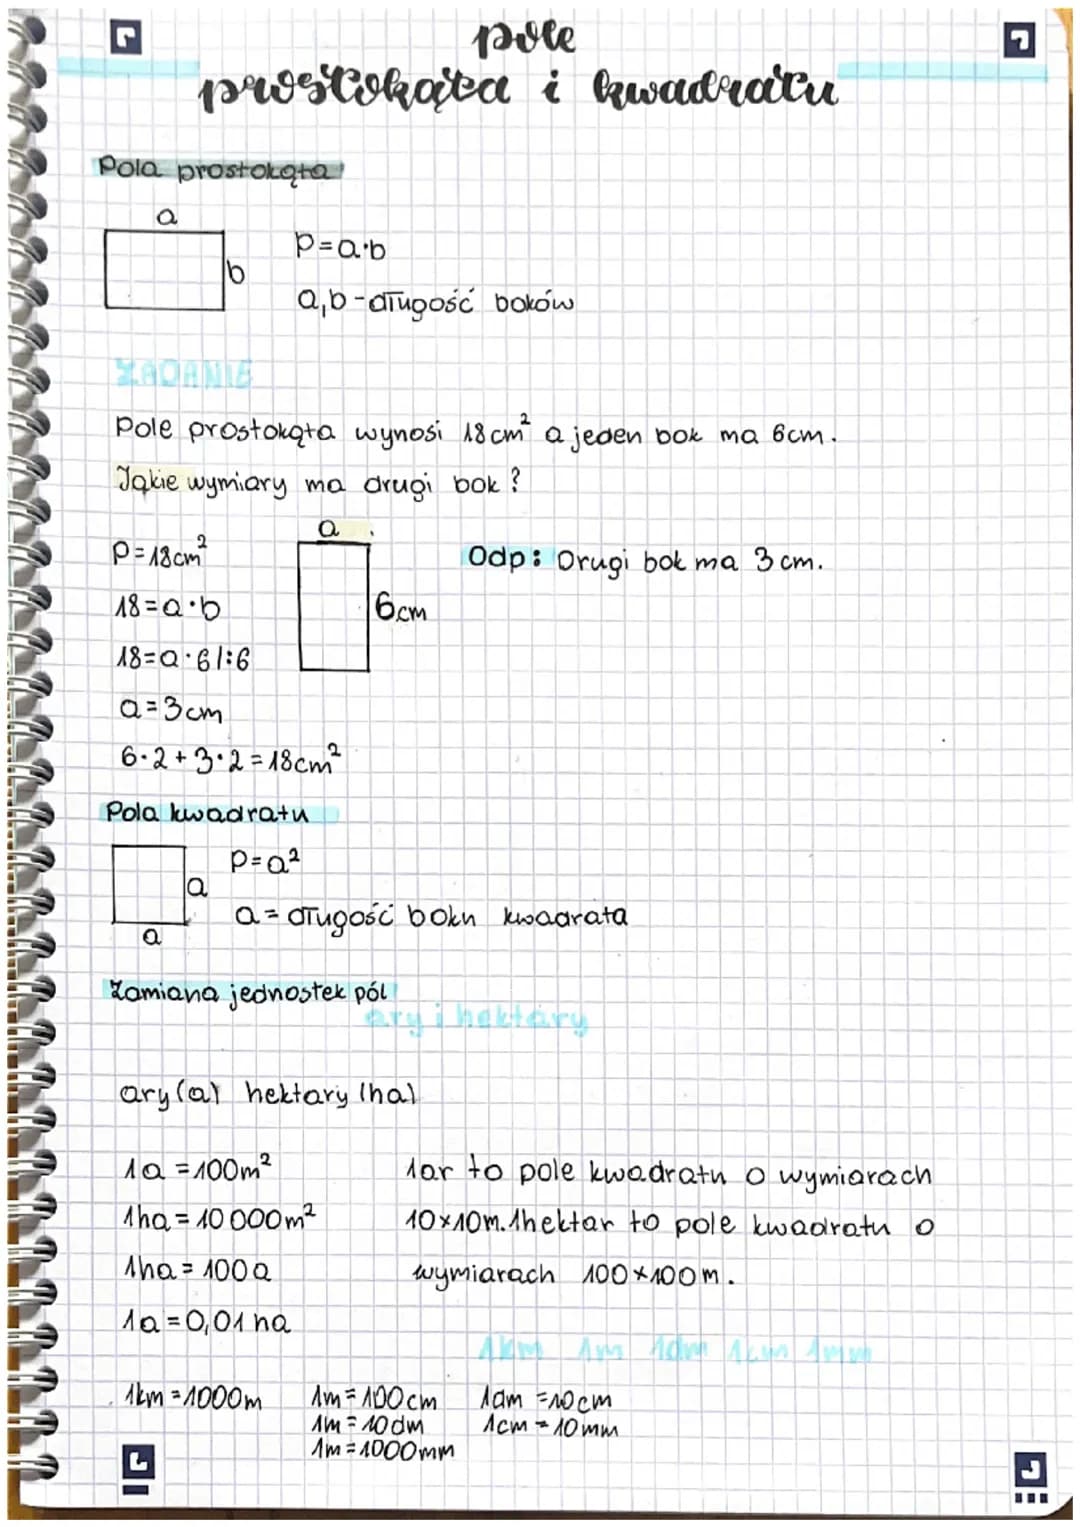 pole
prostokąta i kwadratu
Pola prostokąta
a
b
P=a·b
a,b-długość boków
ZADANIE
Pole prostokąta wynosi 18cm² a jeden bok ma 6cm.
Jakie wymiary ma drugi bok?
P=18cm²
a
Odp: Drugi bok ma 3cm.
18=a·b
6cm
18=a·6/:6
a=3cm
6·2+3·2=18cm²
Pola kwadratu
P=a²
a
a
a= długość boku kwadrata
Zamiana jednostek pól
ary i hektary
ary(a) hektary (ha)
1a=100m²
1ha=10000m²
1ha=100a
1a=0,01ha
1ar to pole kwadratu o wymiarach
10×10m. 1hektar to pole kwadratu o
wymiarach 100×100m.
1km 1m 1dm 1cm 1mm
1km=1000m
1m=100cm
1m=10dm
1m=1000mm
1dm=10cm
1cm=10mm